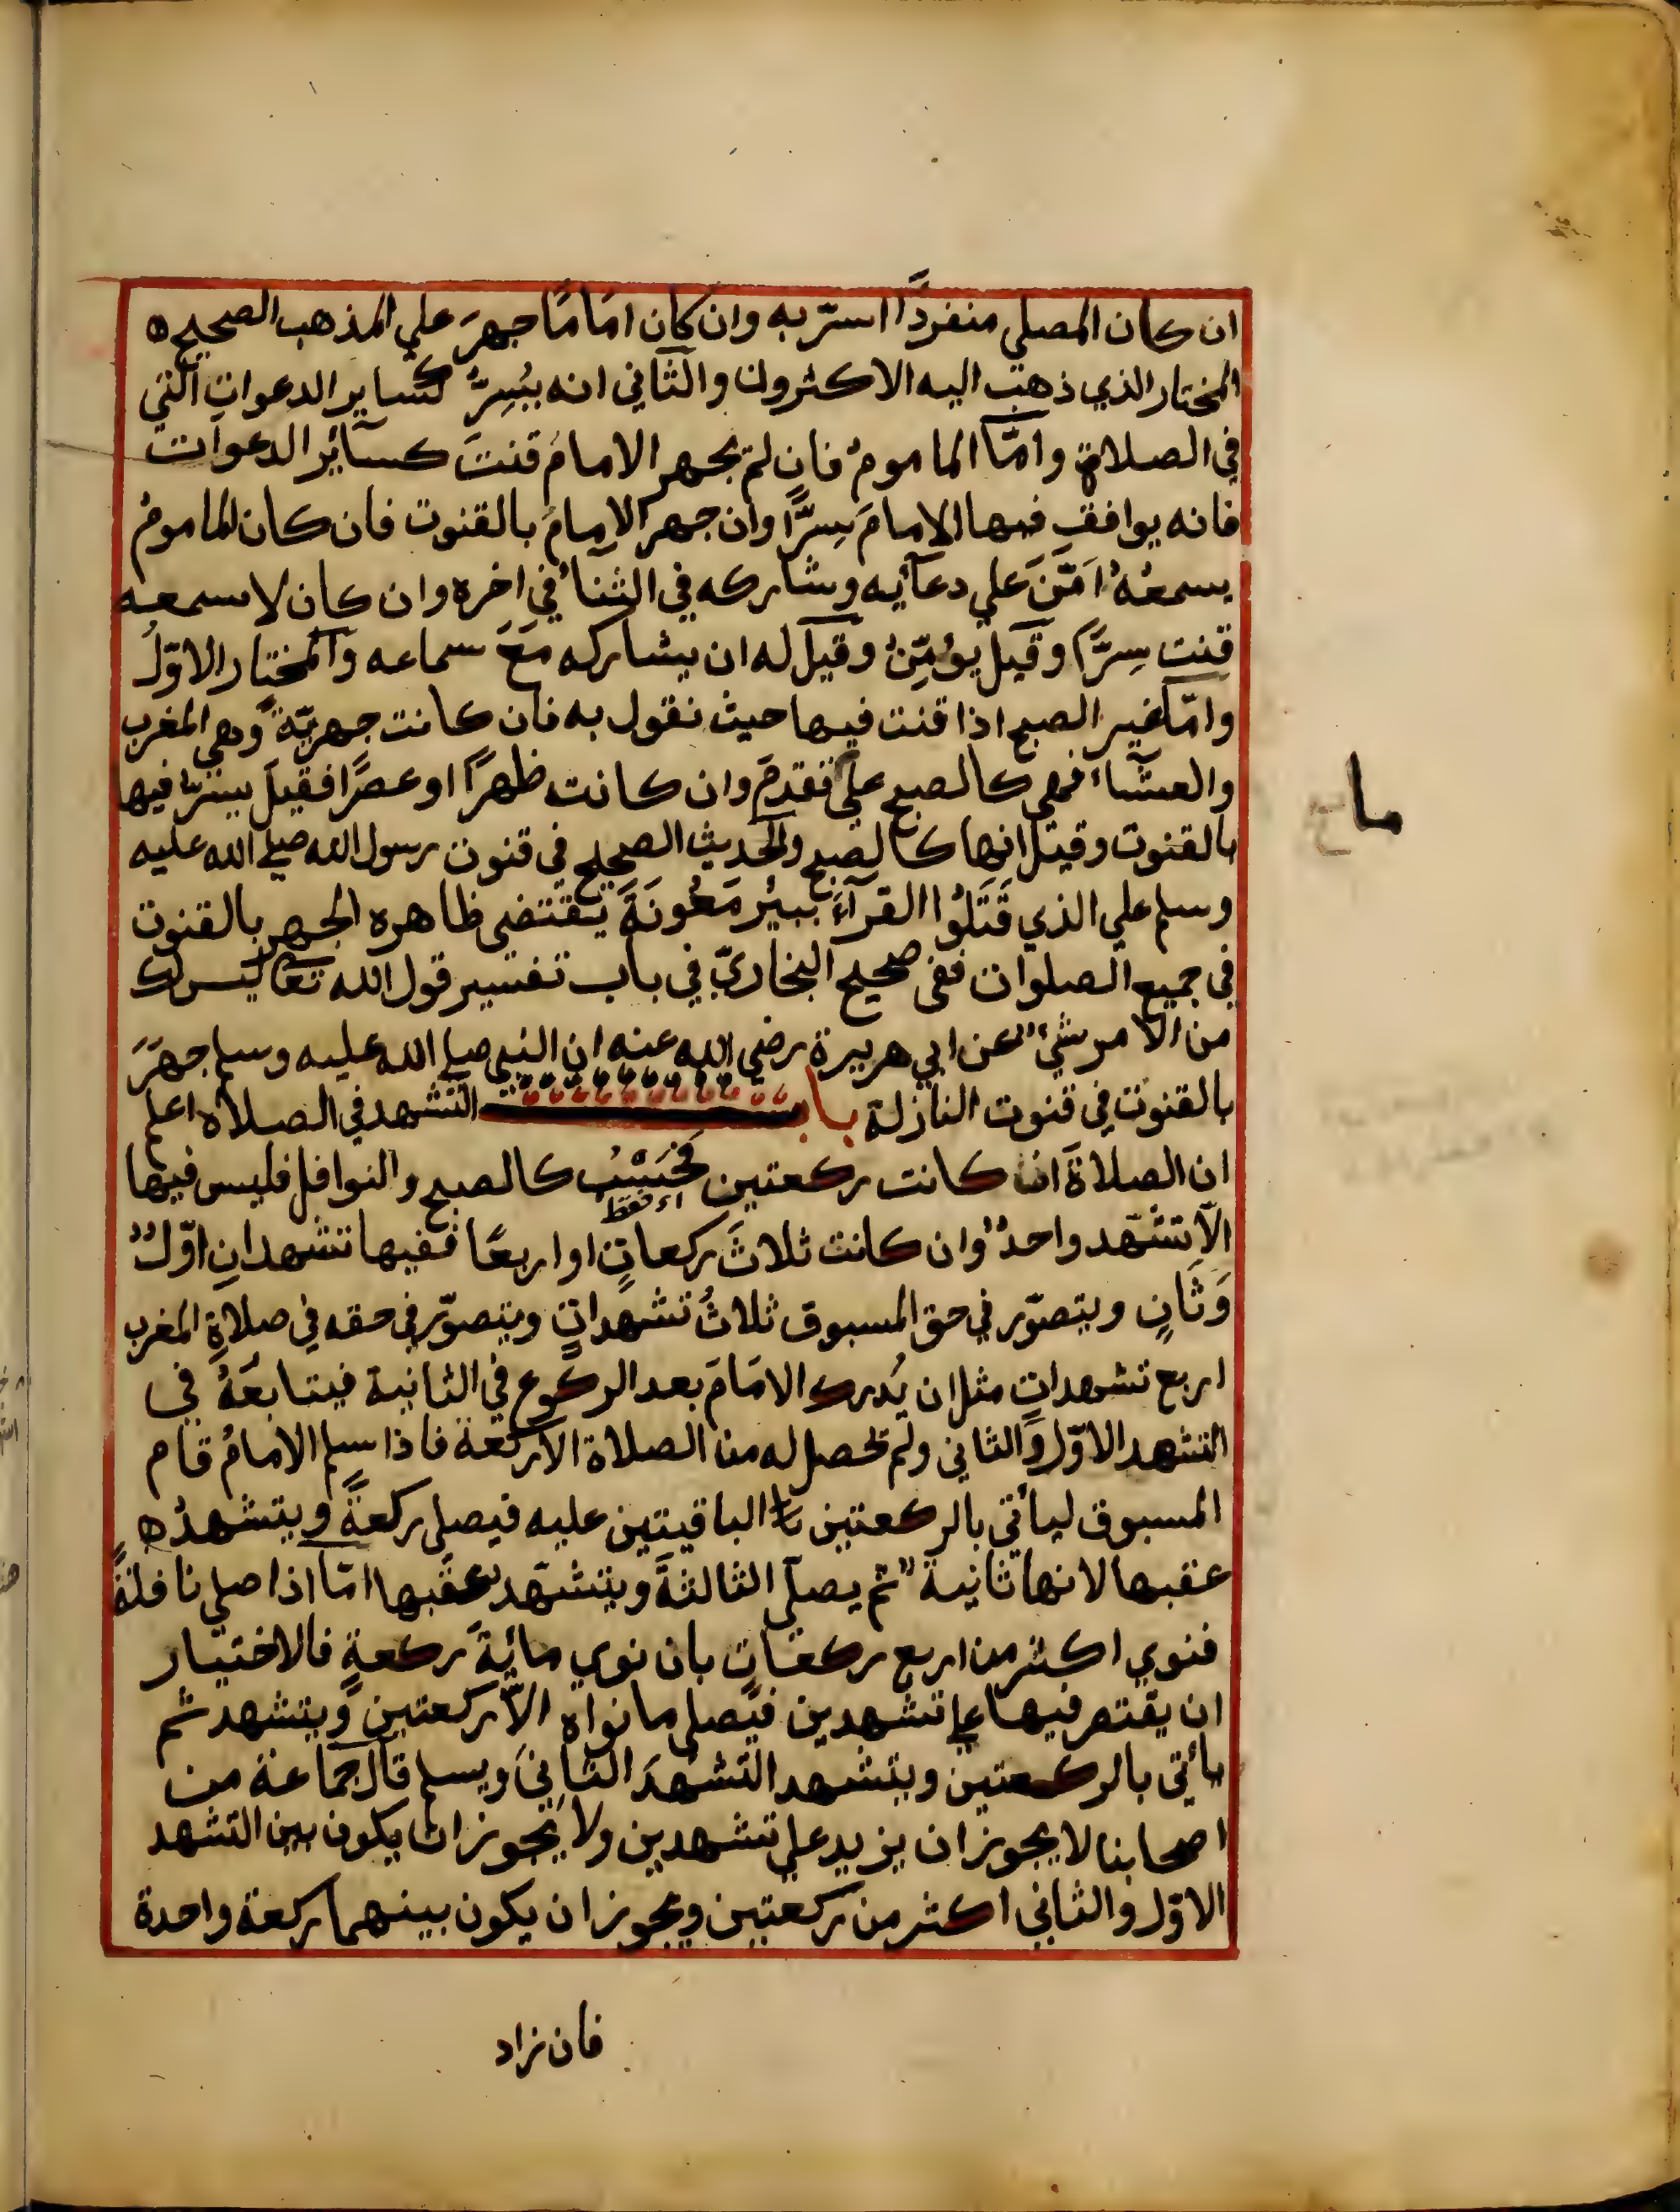 ان كان المصلي منفردًا اسرّ به وان كان امامًا جهرَ علي المذهب الصحيح ه
المختار الذي ذهب اليه الاكثرون والثاني انه يُسِرَّ كساير الدعوات التي
في الصلاة وامّا الماموم فان لم يجهر الامام قنتَ كسائر الدعوات
فانه يوافق فيها الامامَ سِرًّا وان جهر الامام بالقنوت فان كان الماموم
يسمعُهُ امَّنَ علي دعآئِه وشاركه في الثنآء في اخره وان كان لا سمعه
قنت سِرًّا وقيل يؤمِّنُ وقيل له ان يشاركه مَعَ سماعه والمختار الاوّلُ
وامّا غير الصبح اذا قنت فيها حيث نقول به فان كانت جهريّة وهي المغرب
والعشآء فهي كالصبح علي ققدمَ وان كانت ظهرًا او عصرًا فقيل يسرّ فيها
بالقنوت وقيل انها كالصبح والحديث الصحيح في قنوت رسول الله صلي الله عليه
وسلم علي الذي قَتَلُوا القرآءَ ببئر مَعُونَةَ يقتضى ظاهره الجهر بالقنوت
في جميع الصلوات ففى صحيح البخاريّ في باب تفسير قول الله تعا ليس لك
من الامر شيءٌ عن ابي هريرة رضي الله عنه ان النبي صلي الله عليه وسلم جهَرَ
بالقنوت في قنوت النازلة باب التشهد في الصلاة اعلم
ان الصلاةَ ان كانت ركعتين فحَسْبُ كالصبح والنوافل فليس فيها
اي فقط
الّا تشهّد واحدٌ وان كانت ثلاثَ ركعاتٍ او اربعًا ففيها تشهدانِ اوّلٌ
وَثَانٍ ويتصوّر في حق المسبوق ثلاثُ تشهداتٍ ويتصوّر في حقه في صلاةِ المغرب
اربع تشهداتٍ مثل ان يُدرك الامَامَ بعد الركوع في الثانية فيتابعَهُ في
التشهد الاوّل والثاني ولم تحصل له من الصلاة الا ركعة فاذا سلم الامامُ قام
المسبوق ليأتي بالركعتين الباقيتين عليه فيصلي ركعةً ويتشهدُ ه
عقبها لانها ثانيةٌ ثم يصلّى الثالثةَ ويتشهّد عقبها امّا اذا صلي نافلةً
فنوي اكثر من اربع ركعاتٍ بان نوي مائةَ ركعةٍ فالاختيار
ان يقتصر فيها علي تشهدين فيصلي ما نواه الّا ركعتين ويتشهد ثم
يأتي بالركعتين ويتشهد التشهدَ الثانيَ ويسلم قال جماعة من
اصحابنا لا يجوز ان يزيد علي تشهدين ولا يجوز ان يكون بين التشهد
الاوّل والثاني اكثر من ركعتين ويجوز ان يكون بينهما ركعة واحدة
فان زاد